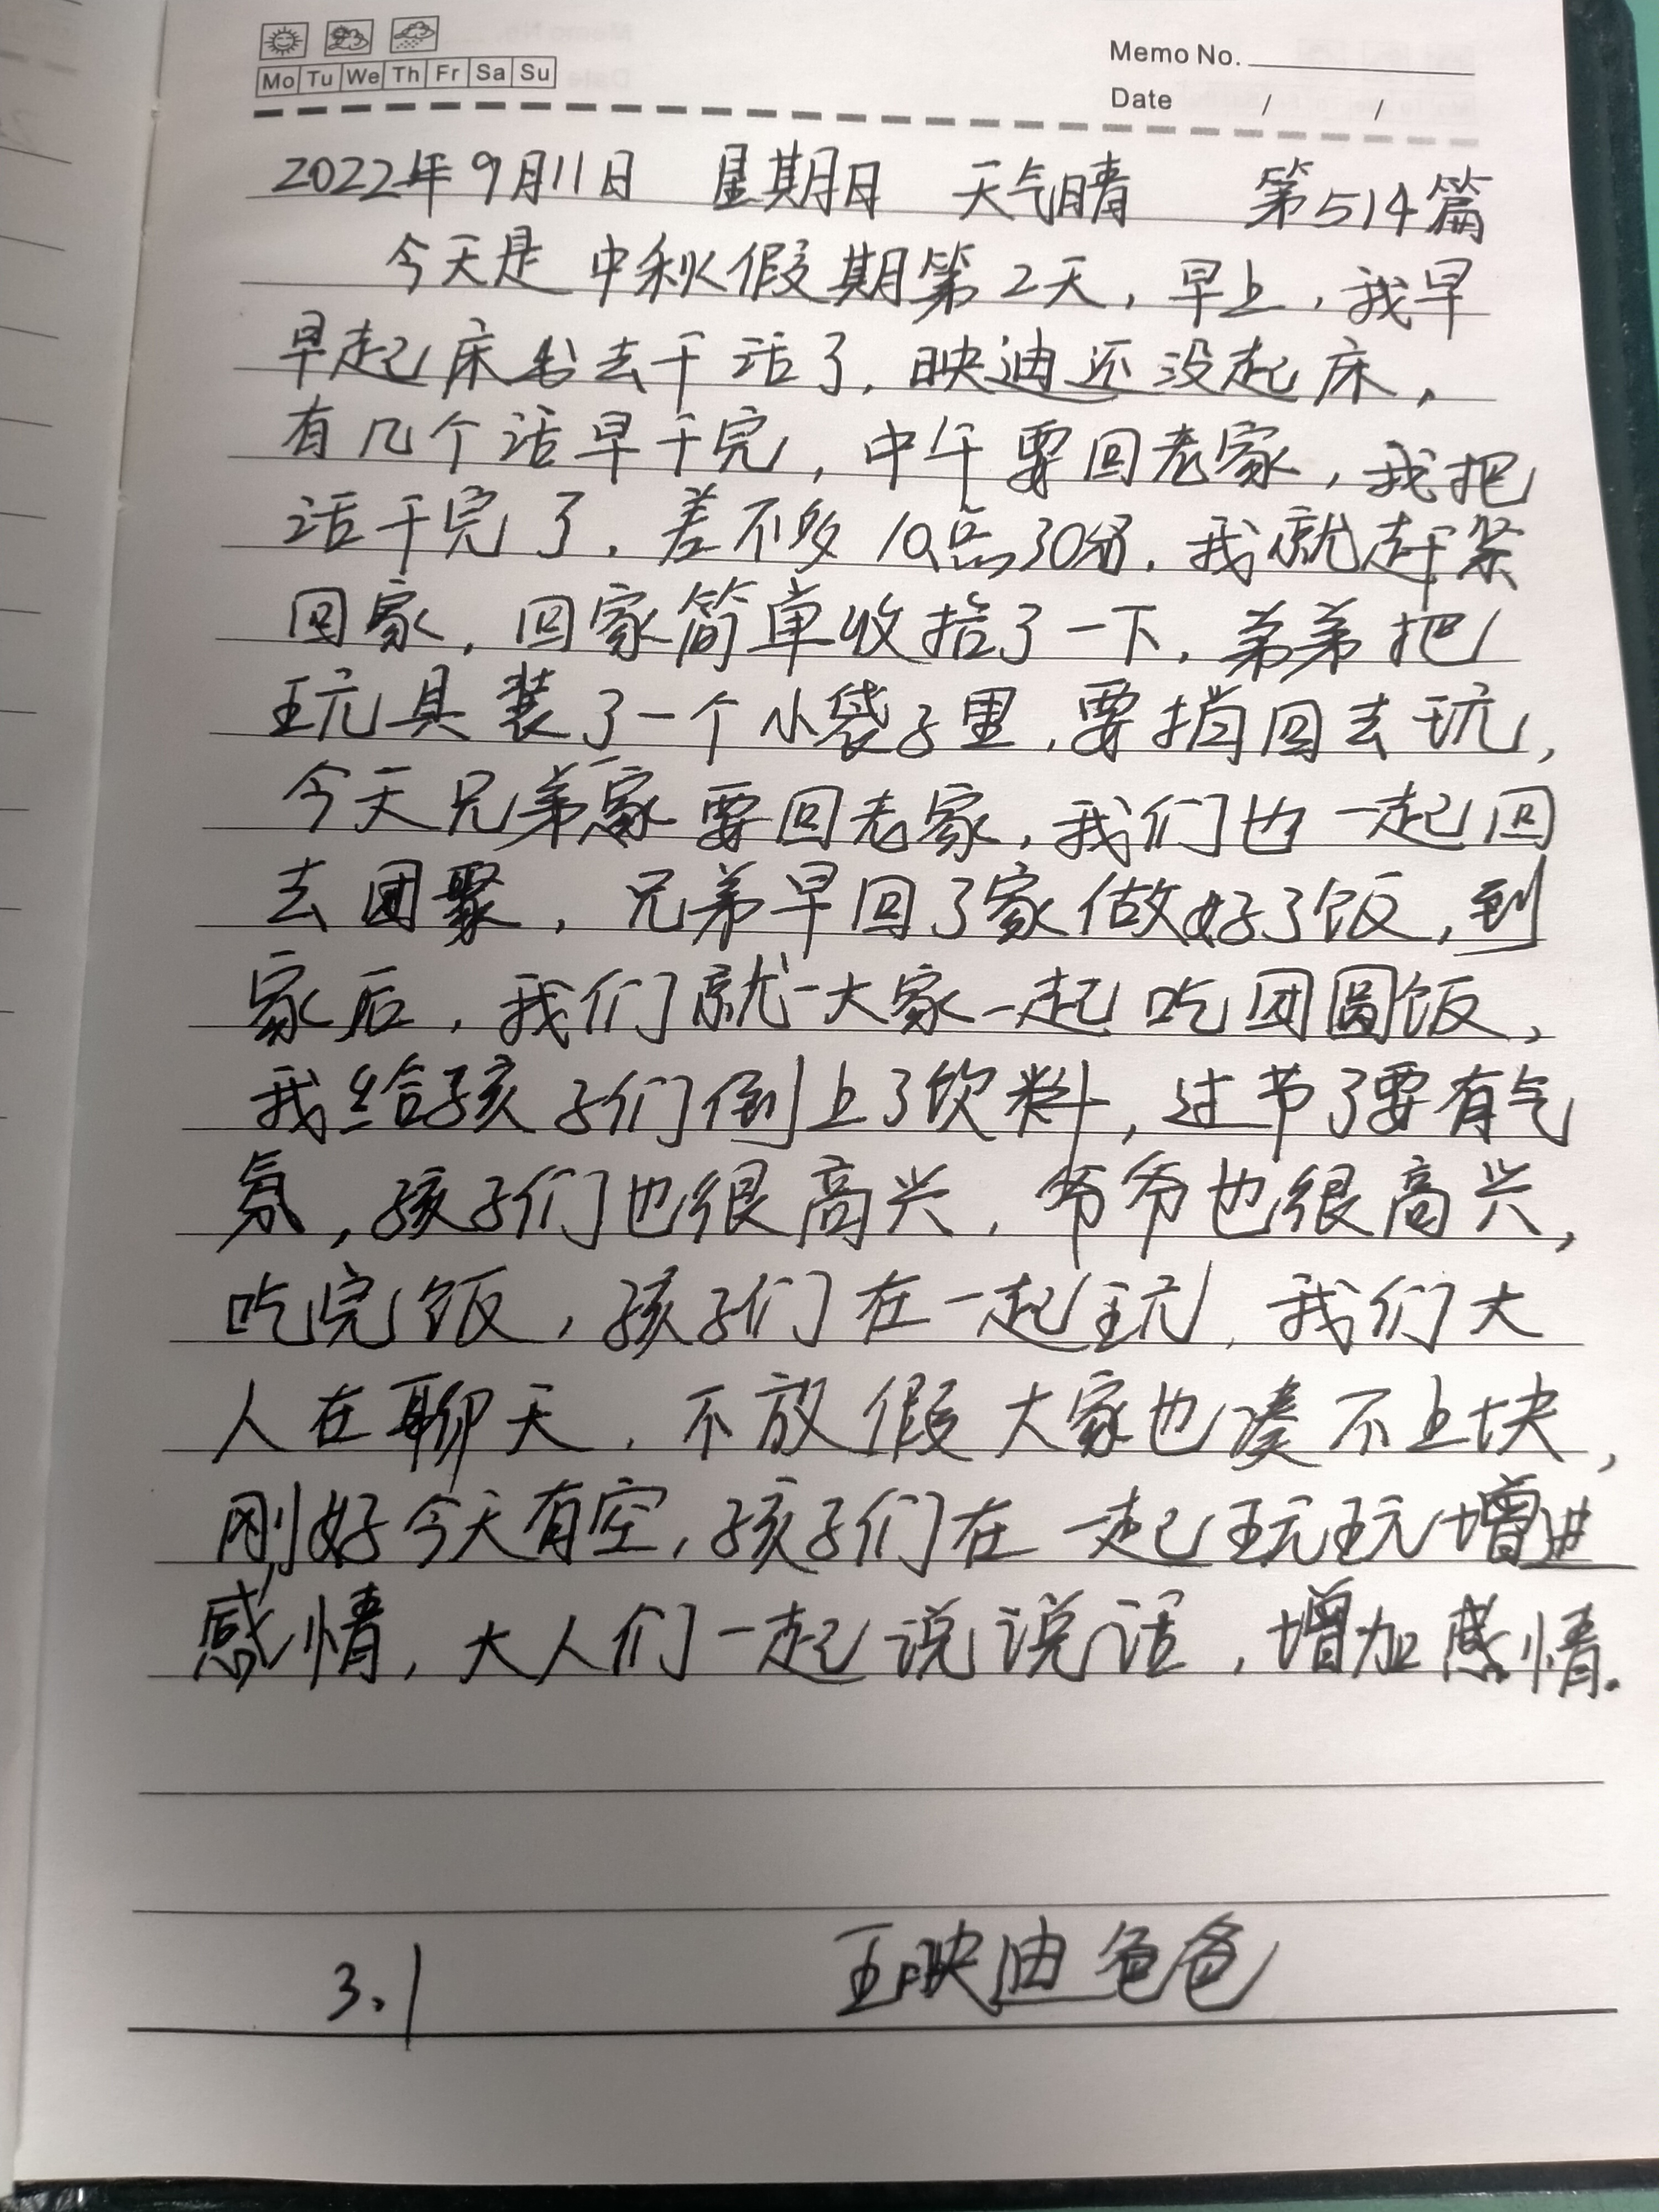 Mo Tu We Th Fr Sa Su
Memo No.
Date / /
2022年9月11日 星期日 天气晴 第514篇
今天是中秋假期第2天,早上,我早
早起床出去干活了,映迪还没起床,
有几个活早干完,中午要回老家,我把
活干完了,差不多10点30分,我就赶紧
回家,回家简单收拾了一下,弟弟把
玩具装了一个小袋子里,要挡回去玩,
今天兄弟家要回老家,我们也一起回
去团聚,兄弟早回了家做好了饭,到
家后,我们就一大家一起吃团圆饭,
我给孩子们倒上了饮料,过节了要有气
氛,孩子们也很高兴,爷爷也很高兴,
吃完饭,孩子们在一起玩,我们大
人在聊天,不放假大家也凑不上块,
刚好今天有空,孩子们在一起玩玩增进
感情,大人们一起说说话,增加感情.
3.1 王映迪爸爸